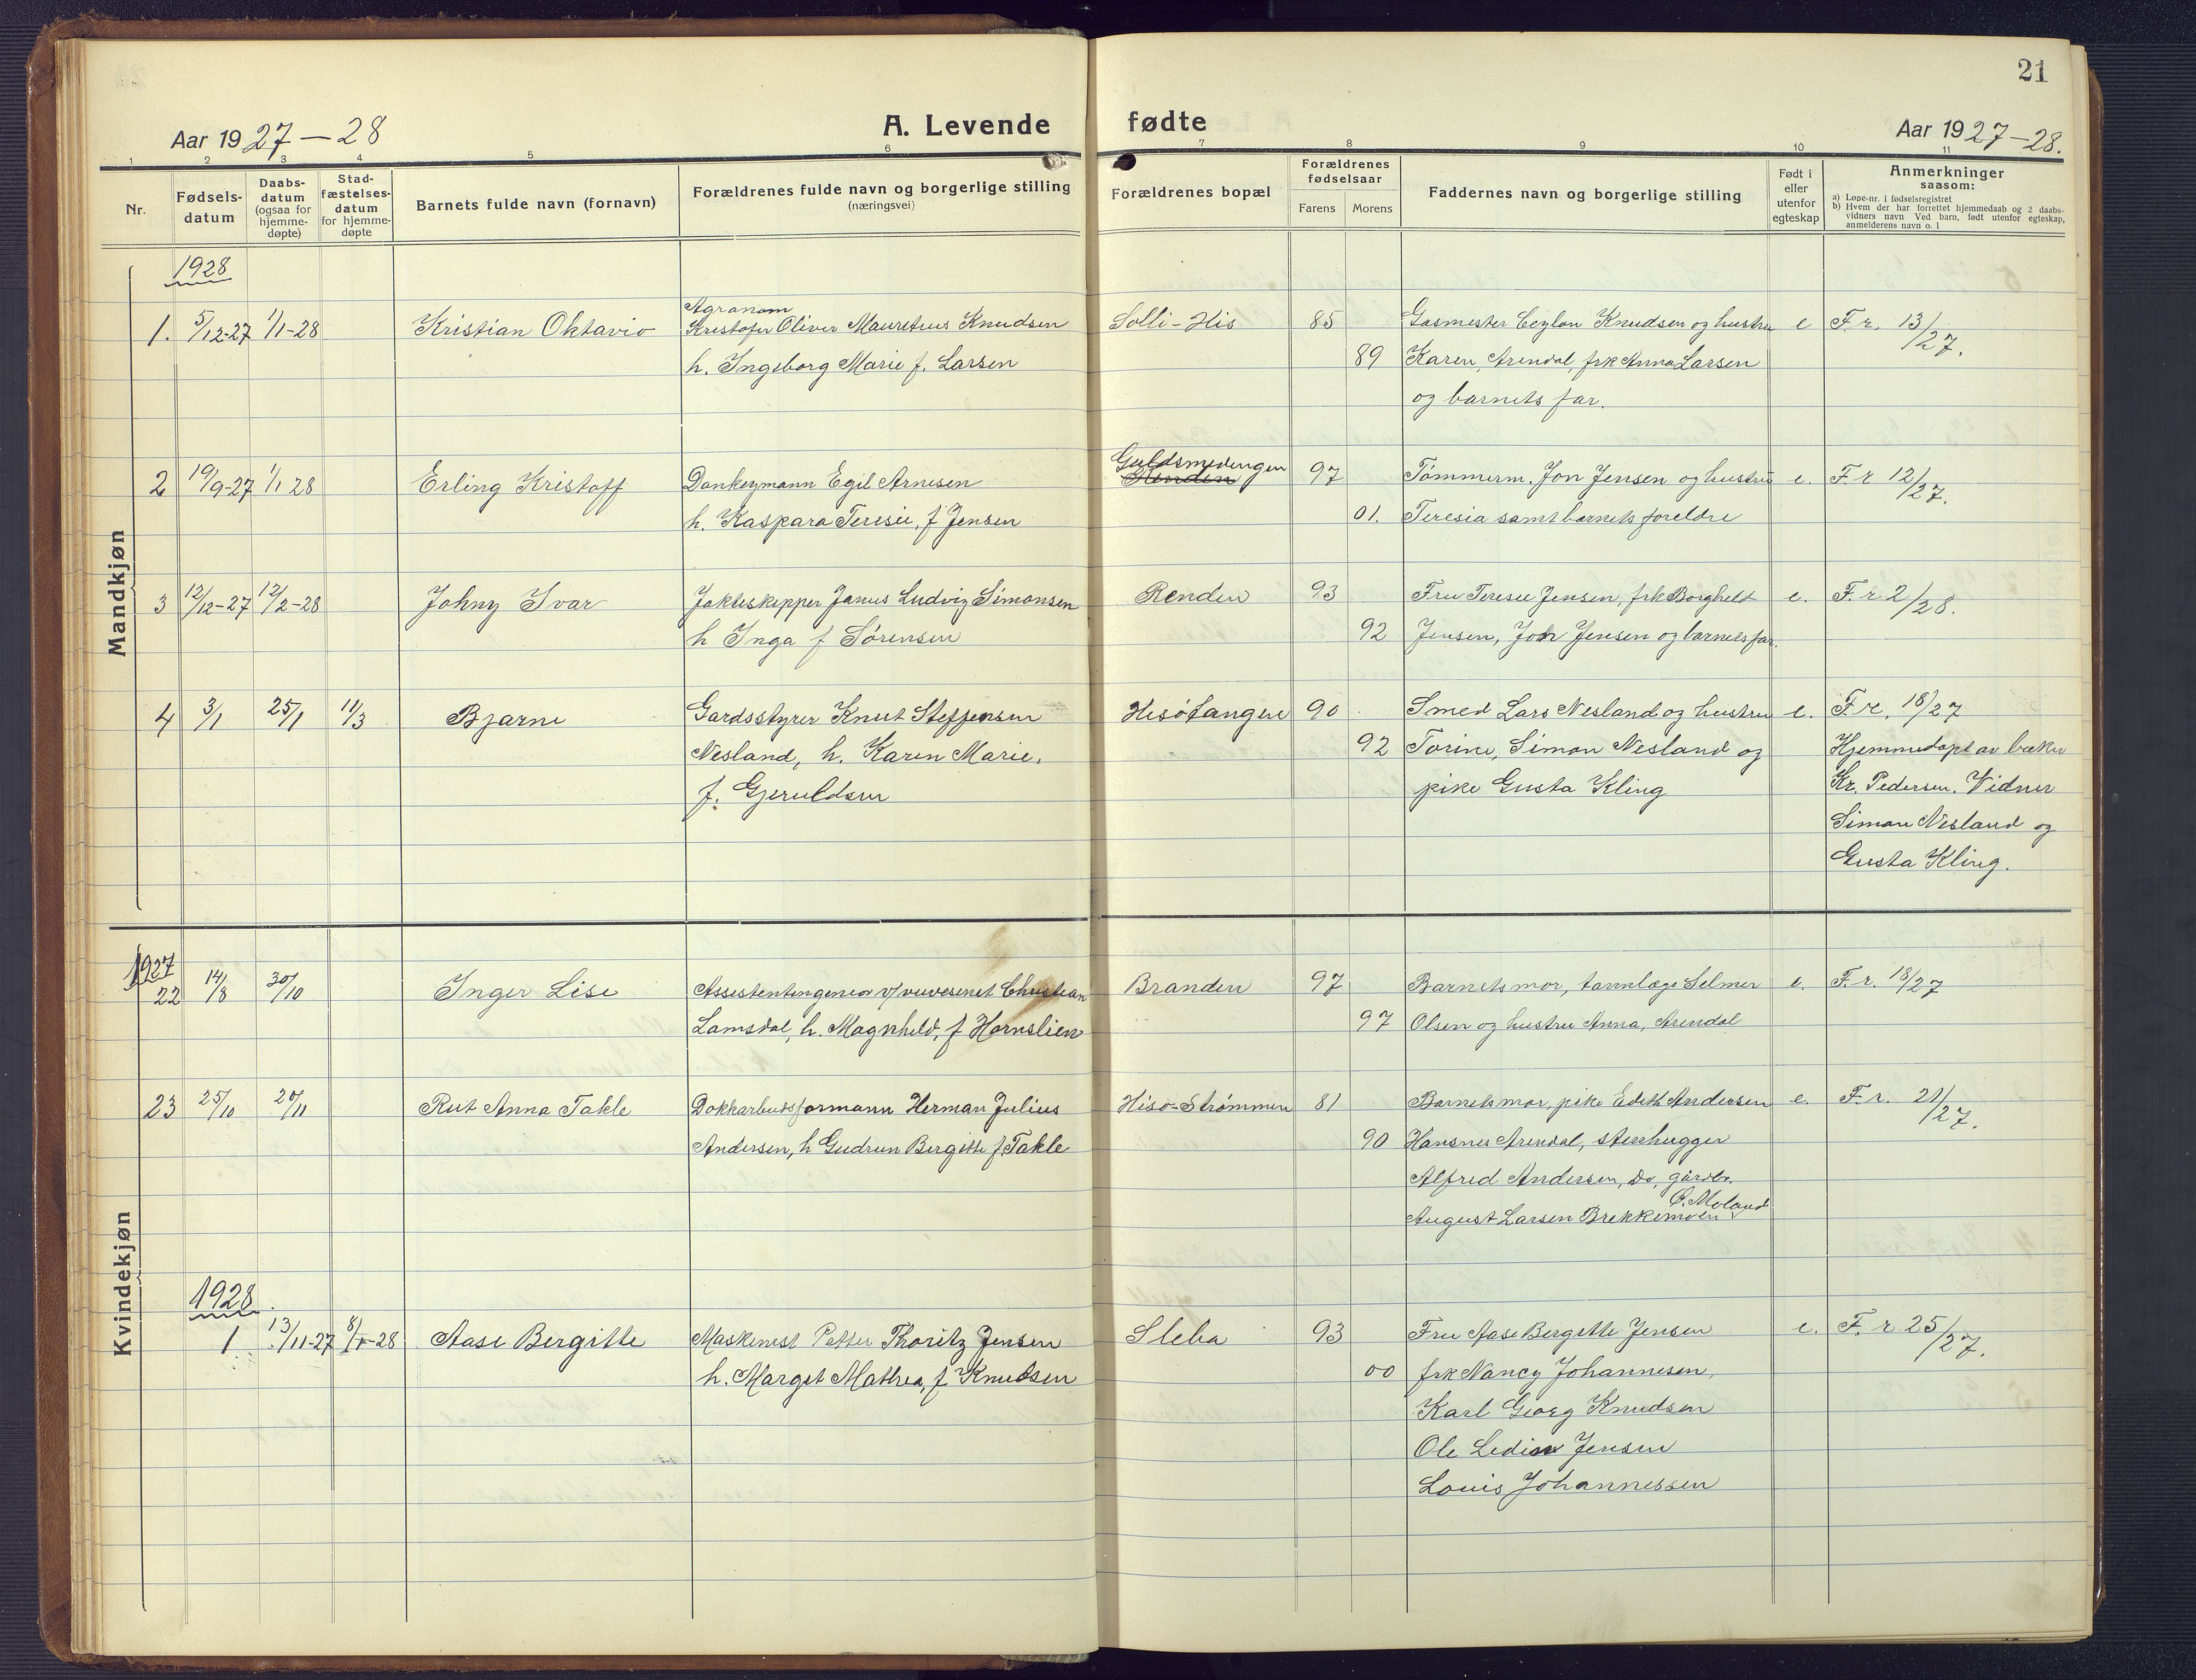 21
Aar 1927–28
A. Levende fødte
Aar 1927–28.
1 2 3 4 5 6 7 8 9 10 11
Nr.
Fødsels-
datum
Daabs-
datum
(ogsaa for
hjemme-
døpte)
Stad-
fæstelses-
datum
for hjemme-
døpte
Barnets fulde navn (fornavn)
Forældrenes fulde navn og borgerlige stilling
(næringsvei)
Forældrenes bopæl
Forældrenes
fødselsaar
Farens Morens
Faddernes navn og borgerlige stilling
Født i
eller
utenfor
egteskap
Anmerkninger
saasom:
a) Løpe-nr. i fødselsregistret
b) Hvem der har forrettet hjemmedaab og 2 daabs-
vidners navn Ved barn, født utenfor egteskap,
anmelderens navn o. l
Mandkjøn
1928
Agronom
1. 5/12-27 1/1-28 Kristian Oktavio Kristofer Oliver Mauretius Knudsen Solli-His 85 Gasmester Ceylon Knudsen og hustru e F. r. 13/27.
h. Ingeborg Marie f. Larsen 89 Karen, Arendal, frk Anna Larsen
og barnets far.
Guldsmedengen
2 19/9-27 1/1 28 Erling Kristoff Donkeymann Egil Arnesen Renden 97 Tømmerm. Jon Jensen og hustru e. F r 12/27.
h. Kaspara Teresie, f Jensen 01. Teresia samt barnets foreldre
3 12/12-27 12/2-28 Johny Ivar Jakteskipper Janus Ludvig Simonsen Renden 93 Fru Teresie Jensen, frk Borghild e. F. r 2/28.
h Inga f Sørensen 92 Jensen, Jon Jensen og barnets far.
4 3/1 25/1 11/3 Bjarne Gardsstyrer Knut Steffensen Hisøtangen 90 Smed Lars Nesland og hustru e. F. r. 18/27
Nesland, h. Karen Marie, 92 Torine, Simon Nesland og Hjemmedøpt av bæker
f. Gjeruldsen pike Gusta Kling Kr. Pedersen. Vidner
Simon Nesland og
Gusta Kling.
Kvindekjøn
1927
22 14/8 30/10 Inger Lise Assistentingeniør v/veivesenet Christian Branden 97 Barnets mor, tannlæge Selmer e. F. r. 18/27
Lamsdal, h. Magnhild, f Hornslien 97 Olsen og hustru Anna, Arendal
23 25/10 20/11 Rut Anna Takle Dokkarbeidsformann Herman Julius Hisø-Strømmen 81 Barnets mor, pike Edith Andersen e. F. r. 21/27.
Andersen, h Gudrun Bergitte f. Takle 90 Hansnes Arendal, stenhugger
Alfred Andersen, do, gårdbr.
Ø. Moland
August Larsen Brekkemoen
1928.
1 13/11-27 8/1-28 Aase Bergitte Maskinist Petter Thoritz Jensen Sleba 93 Fru Aase Bergitte Jensen e. F. r 25/27.
h. Margit Mathea, f Knudsen 00 frk Nancy Johannesen,
Karl Georg Knudsen
Ole Jensen
Louis Johannessen